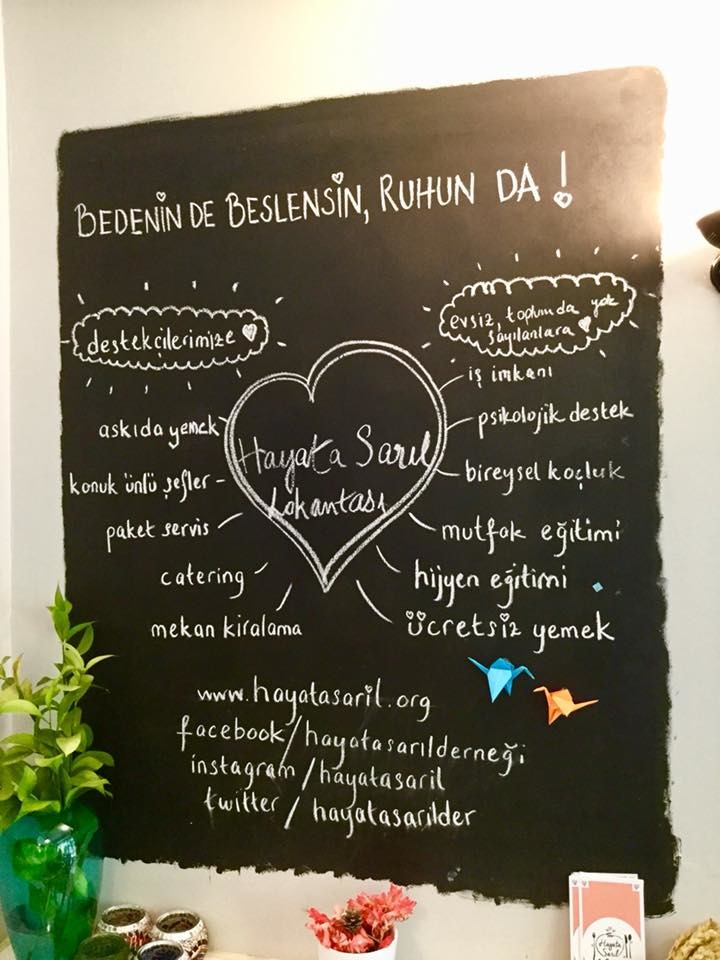 BEDENİN DE BESLENSİN, RUHUN DA !
destekçilerimize
evsiz, toplumda yok
sayılanlara
askıda yemek
konuk ünlü şefler
paket servis
catering
mekan kiralama
Hayata Sarıl
Lokantası
iş imkanı
psikolojik destek
bireysel koçluk
mutfak eğitimi
hijyen eğitimi
ücretsiz yemek
www.hayatasaril.org
facebook/hayatasarılderneği
instagram/hayatasaril
twitter/hayatasarilder
Hayata
Sarıl